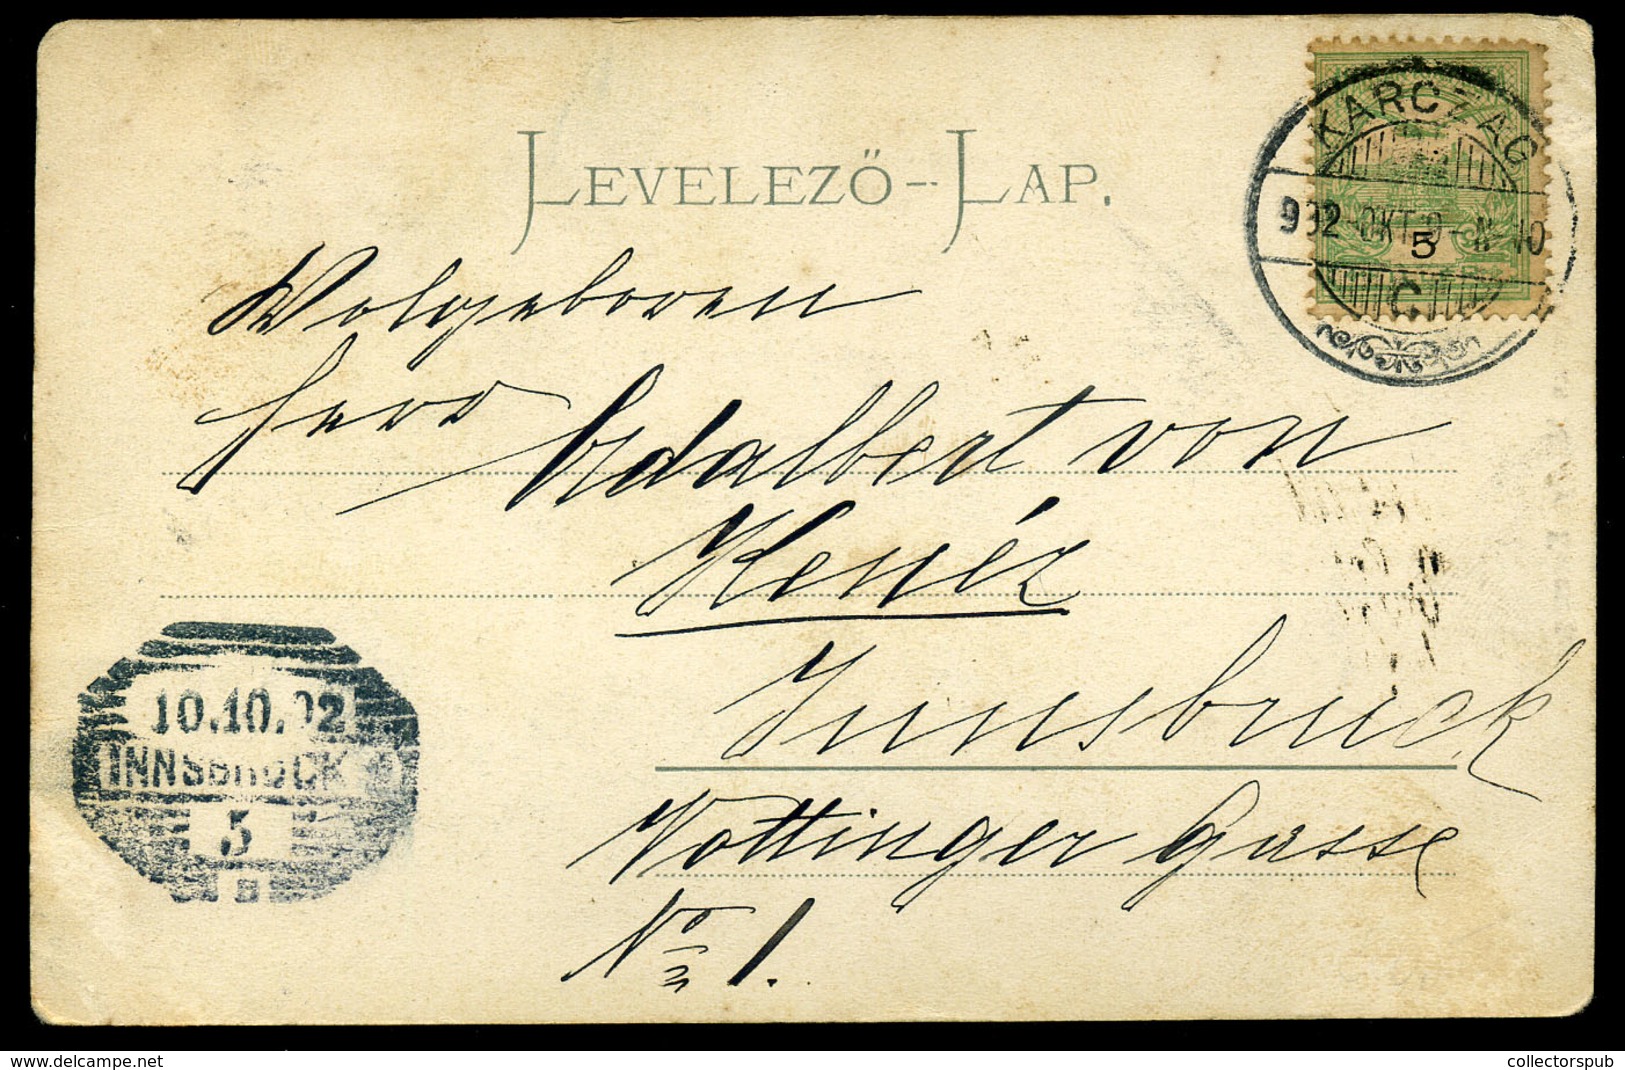 LEVELEZŐ-LAP.
KARCZAG
902 OKT. 9 - N 10
5
C.
Wolgeboren
Herr Adalbert von
Kenéz
Innsbruck
Nottinger Gasse
No 1.
10.10.02
INNSBRUCK
5
www.delcampe.net
collectorspub